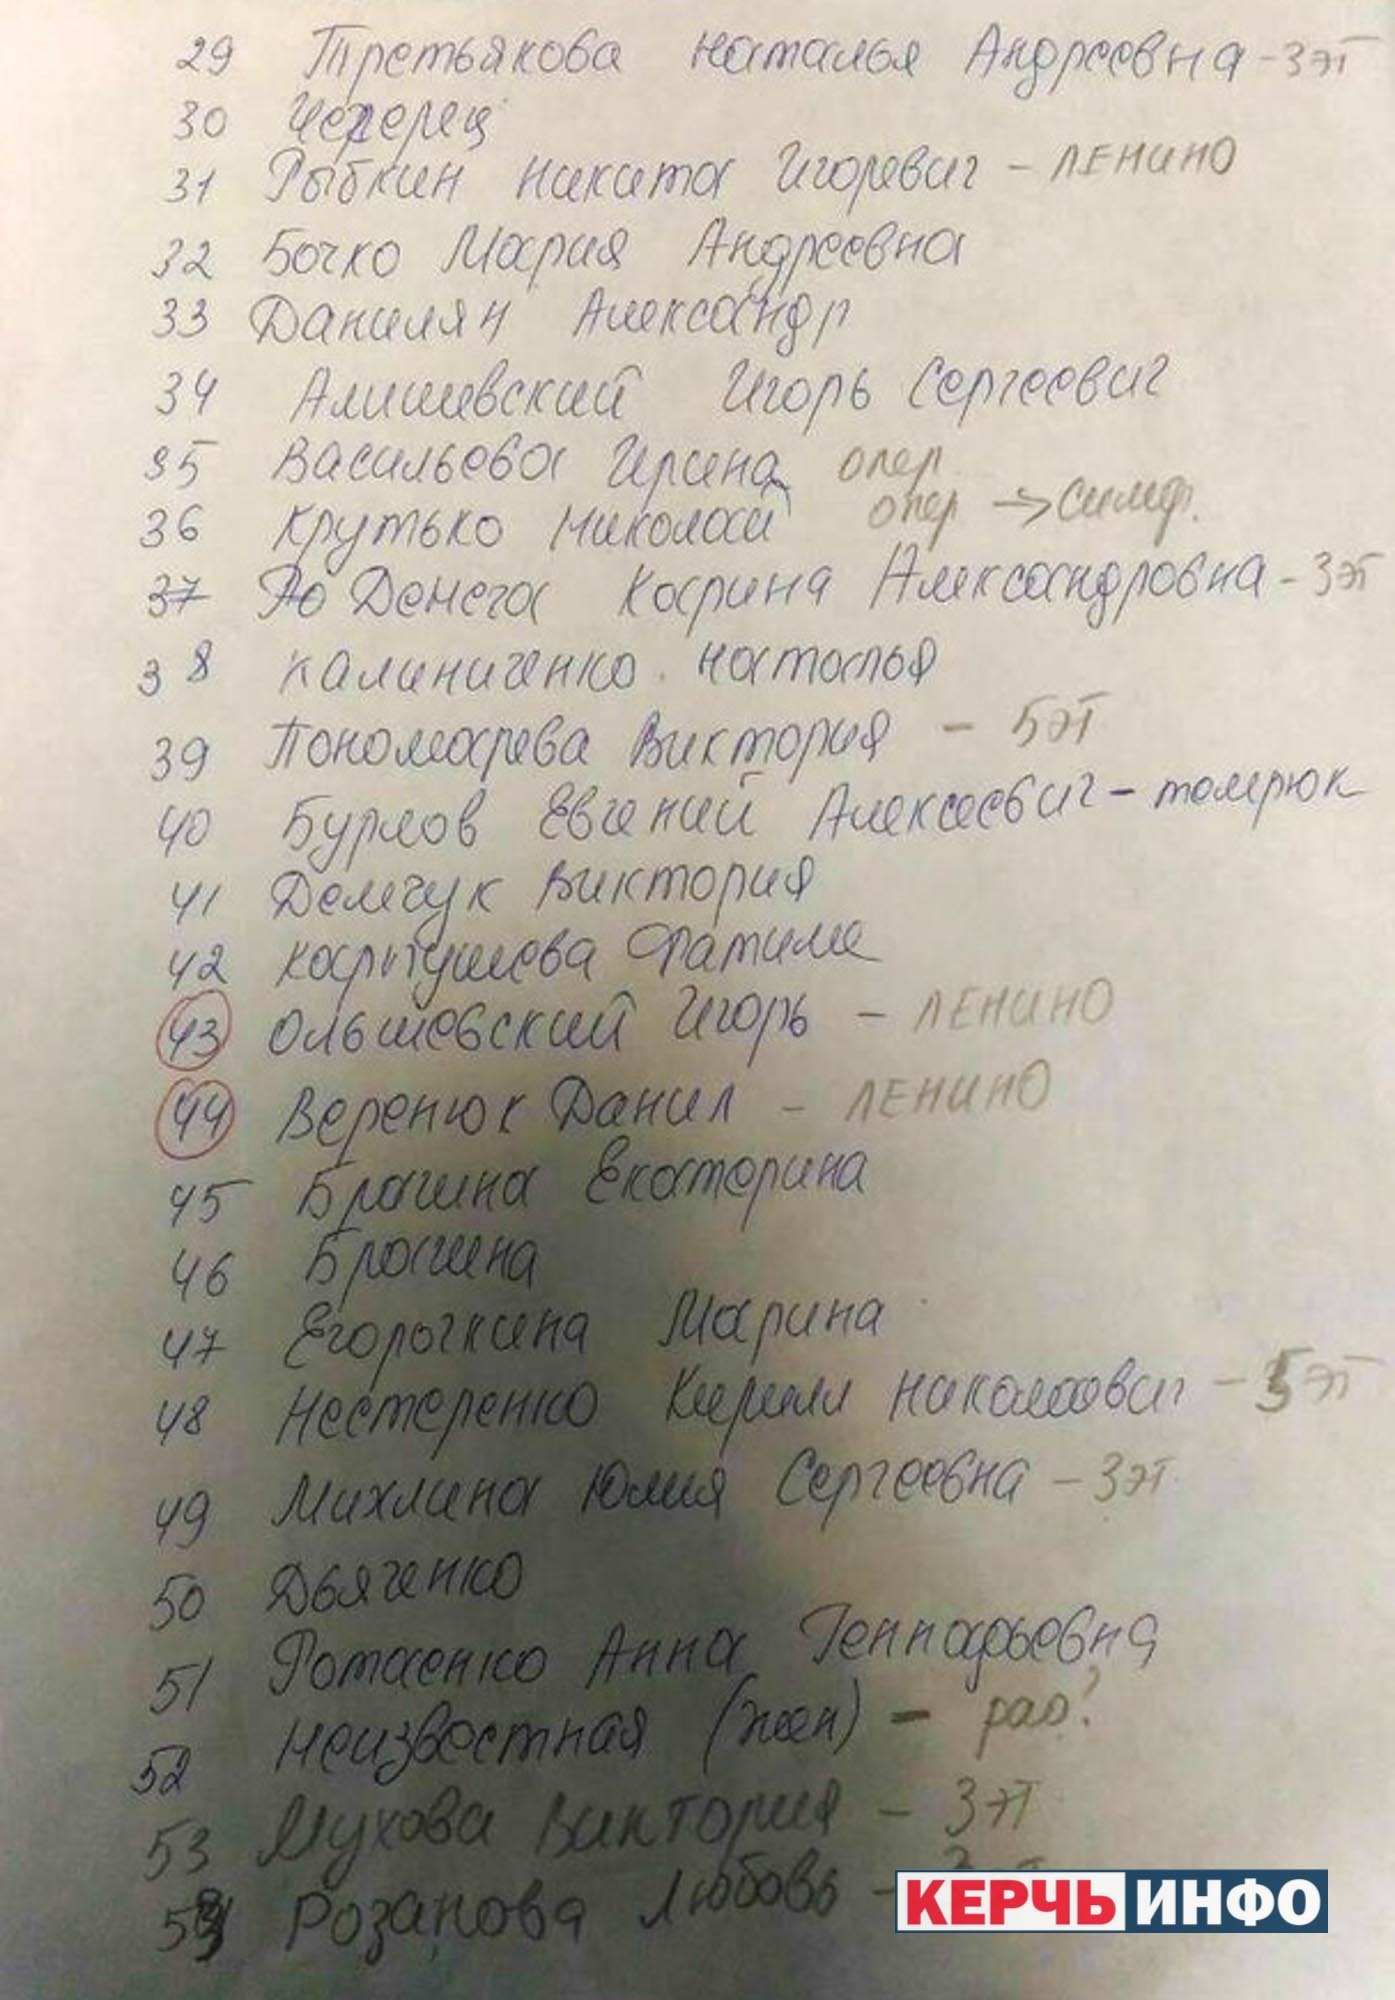 29 Третьякова Наталья Андреевна - 3 эт
30 Черерец
31 Рыбкин Никита Игоревич - ЛЕНИНО
32 Бочко Мария Андреевна
33 Данилян Александр
34 Алишевский Игорь Сергеевич
35 Васильева Ирина опер
36 Крутько Николай опер → Симф.
37 Денега Карина Александровна - 3 эт
38 Калиниченко Наталья
39 Пономарева Виктория - 5 эт
40 Бурлов Евгений Алексеевич - темрюк
41 Демчук Виктория
42 Фатиме
43 Ольшевский Игорь - ЛЕНИНО
44 Веренюк Данил - ЛЕНИНО
45 Брагина Екатерина
46 Брагина
47 Егорочкина Марина
48 Нестеренко Кирилл Николаевич - 5 эт
49 Михлина Юлия Сергеевна - 3 эт
50 Дьяченко
51 Анна Геннадьевна
52 Неизвестная (жен) - рао?
53 Мухова Виктория - 3 эт
54 Розанова Любовь -
КЕРЧЬИНФО